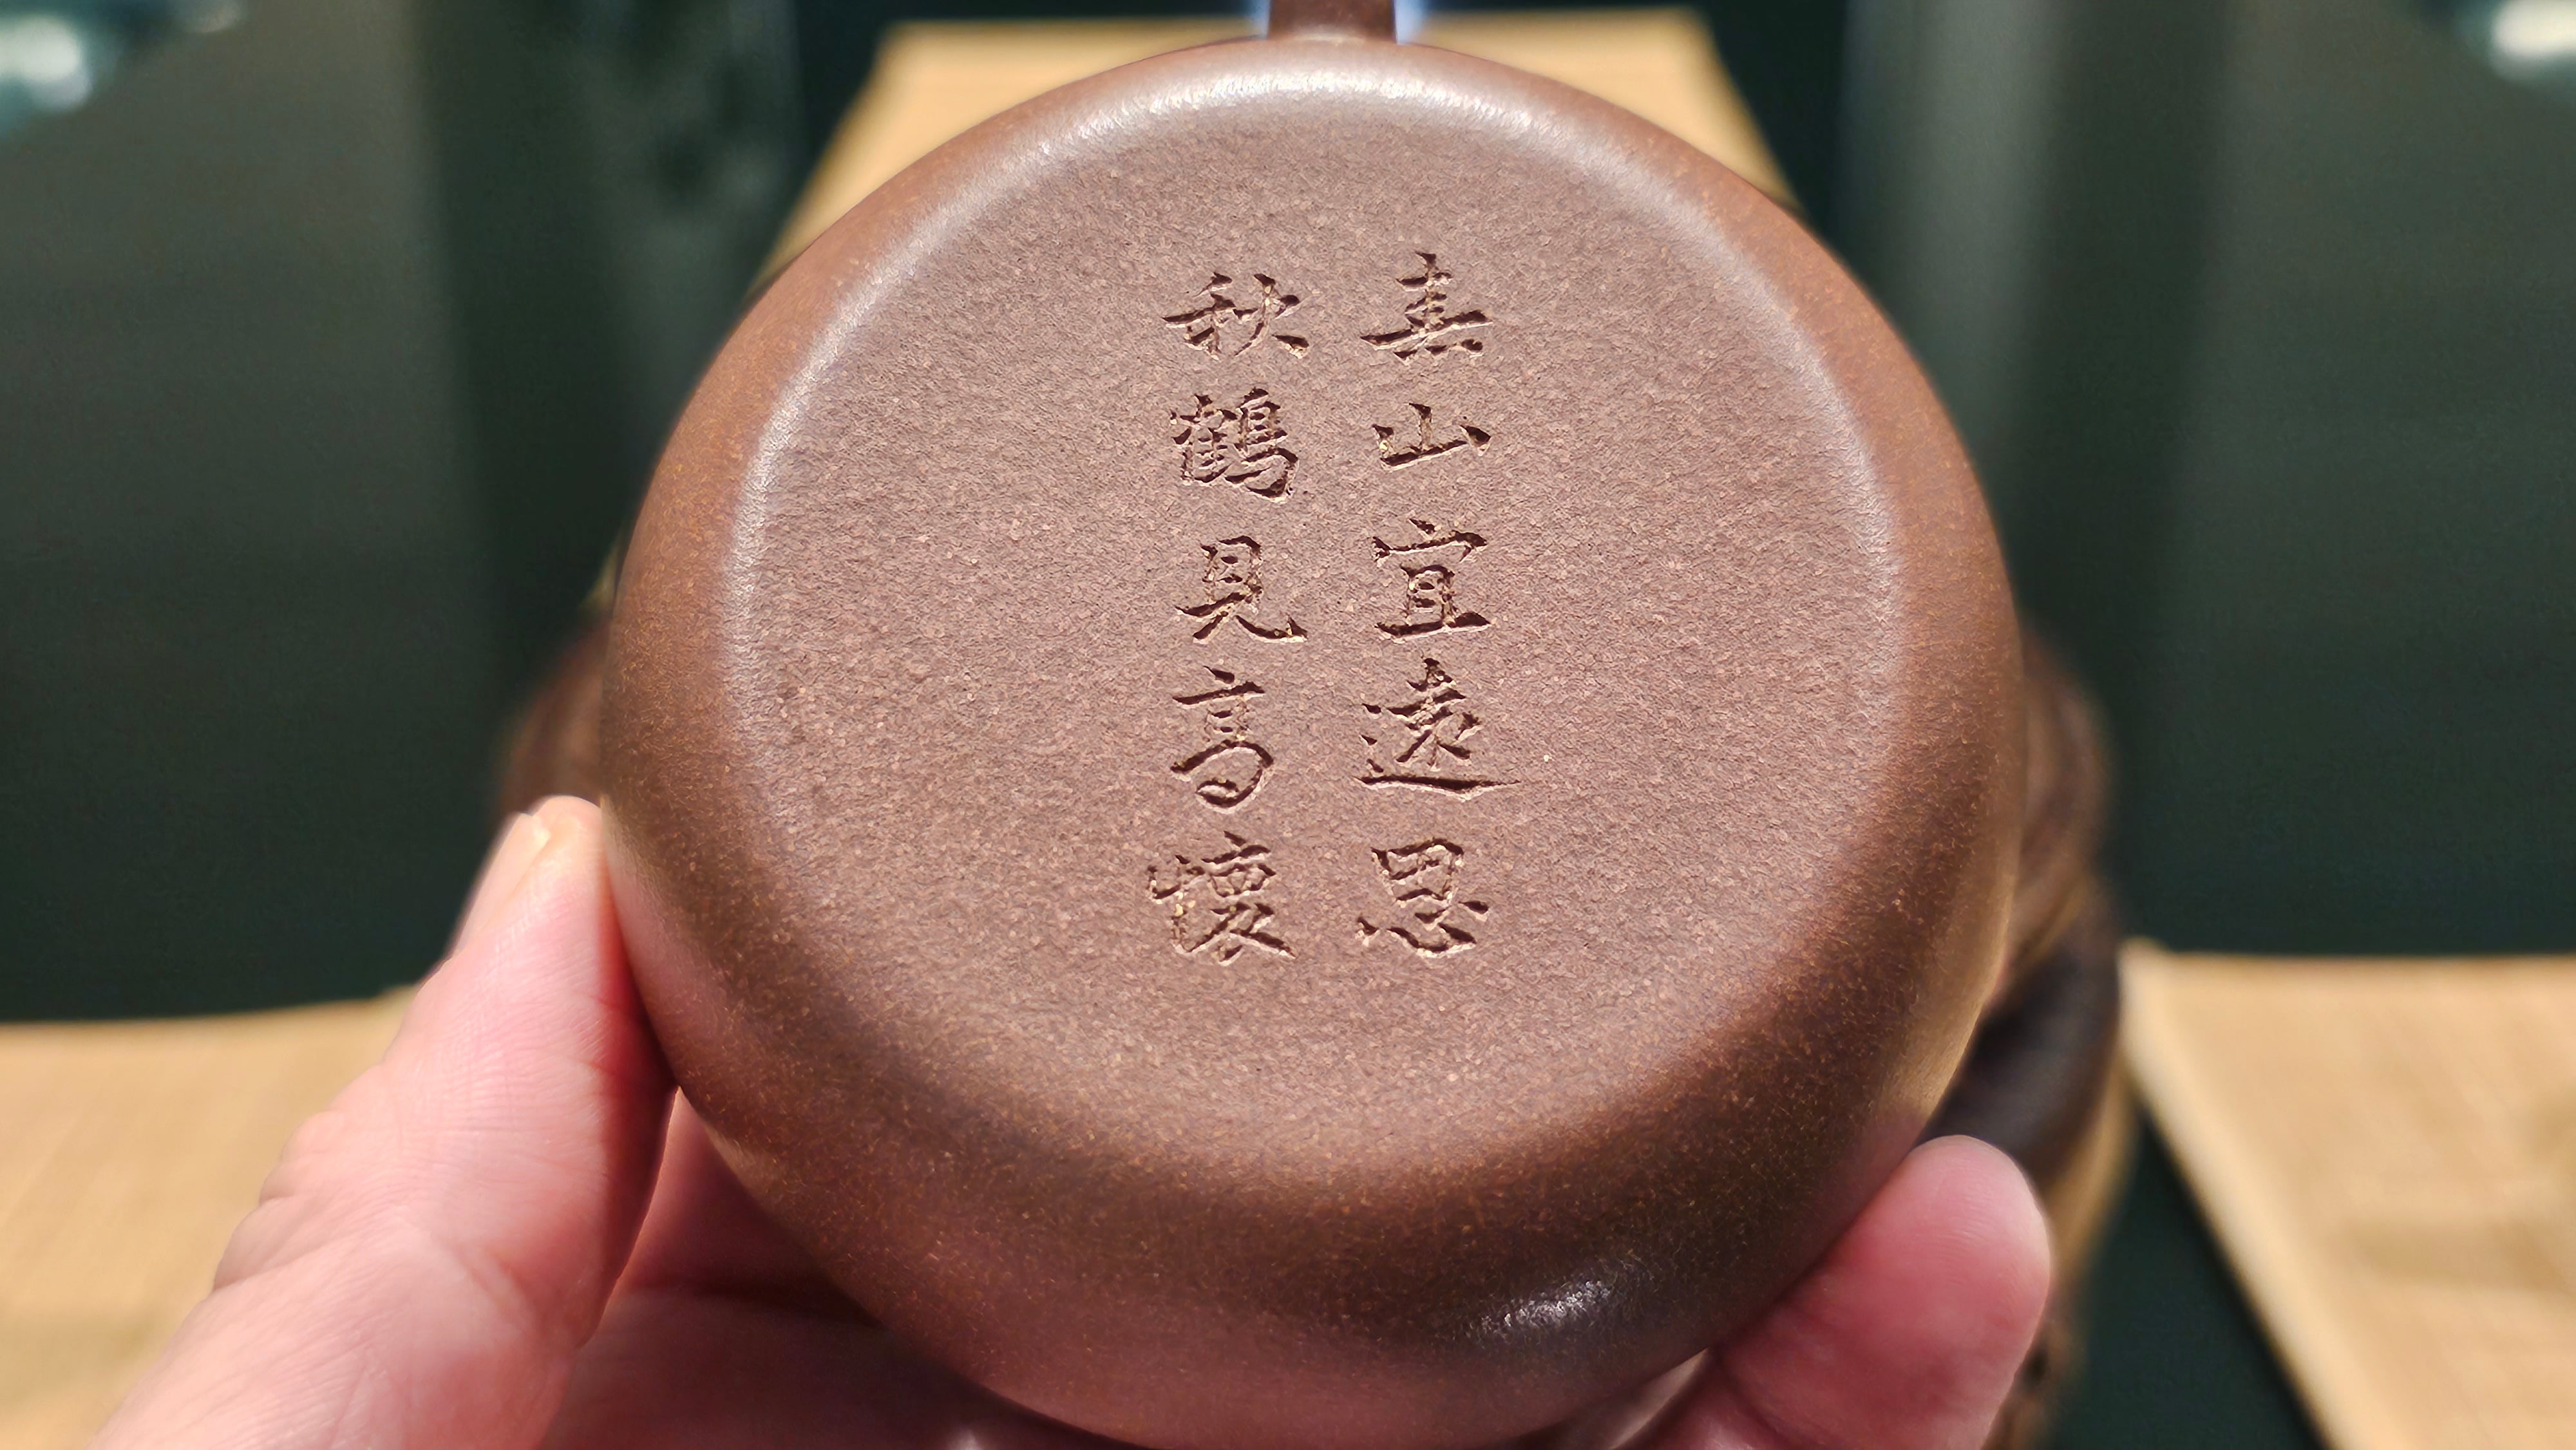 山宜遠思
秋鶴見高懷